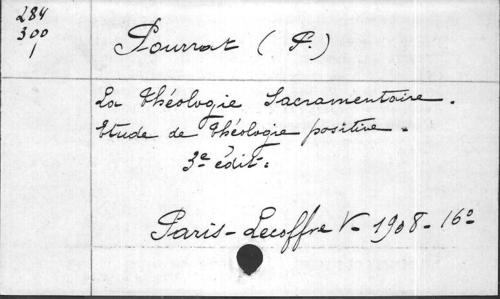 284
300
1
Pourrat ( P. )
La théologie Sacramentaire.
Etude de théologie positive.
3e édit.
Paris - Lecoffre V - 1908 - 16o